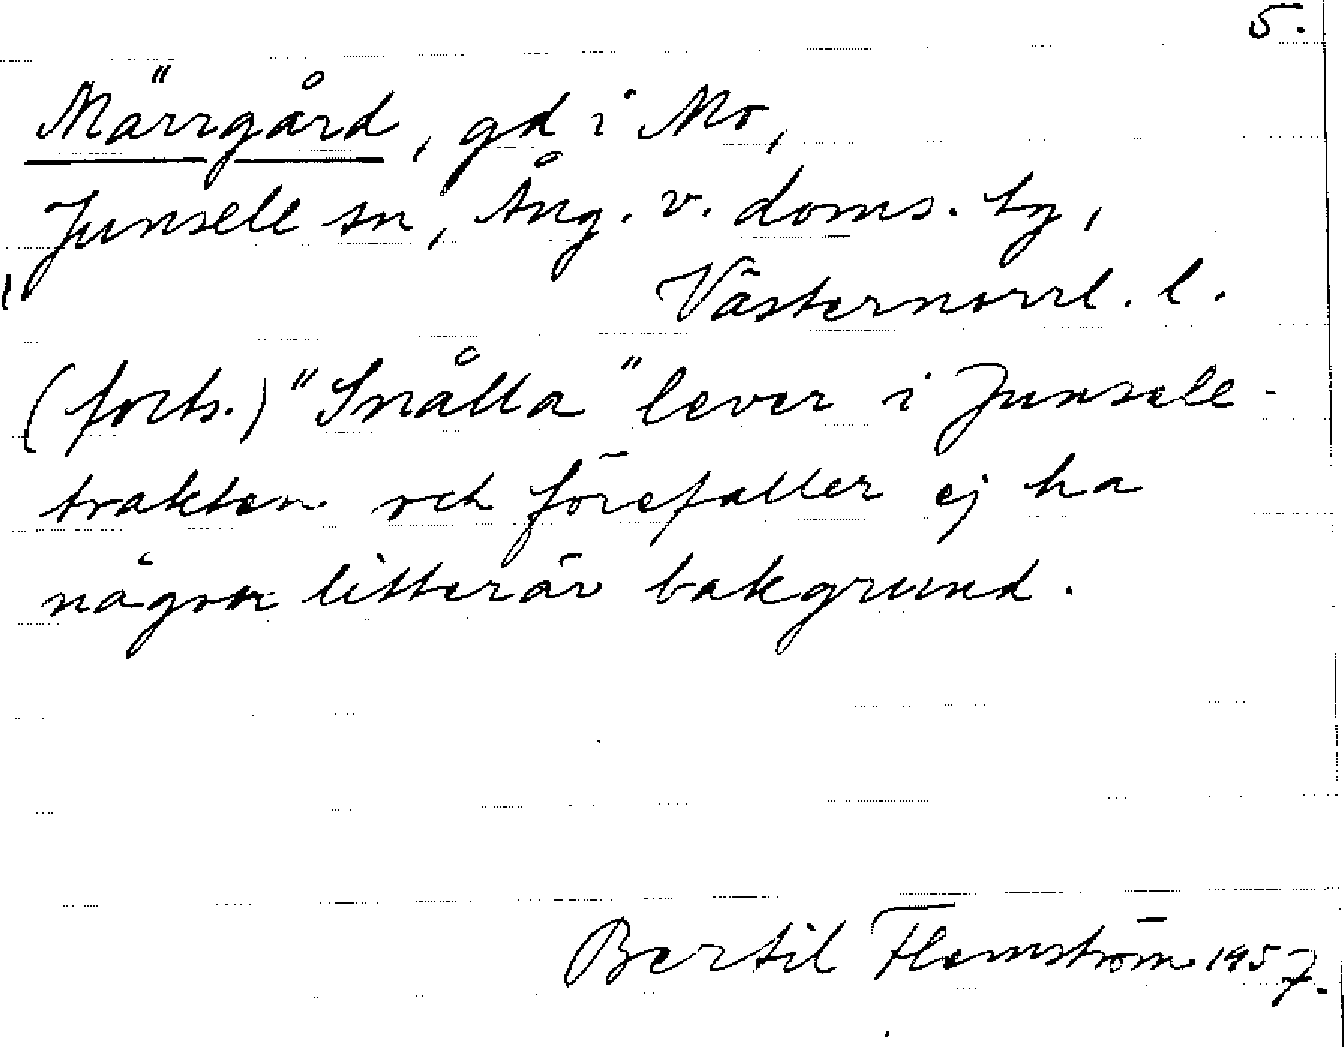 5.
Märrgård, gd i Mo,
Junsele sn, Ång. v. doms. tg,
Västernorrl. l.
(forts.) "Snålla" lever i Junsele-
trakten och förefaller ej ha
någon litterär bakgrund.
Bertil Flemström 1957.